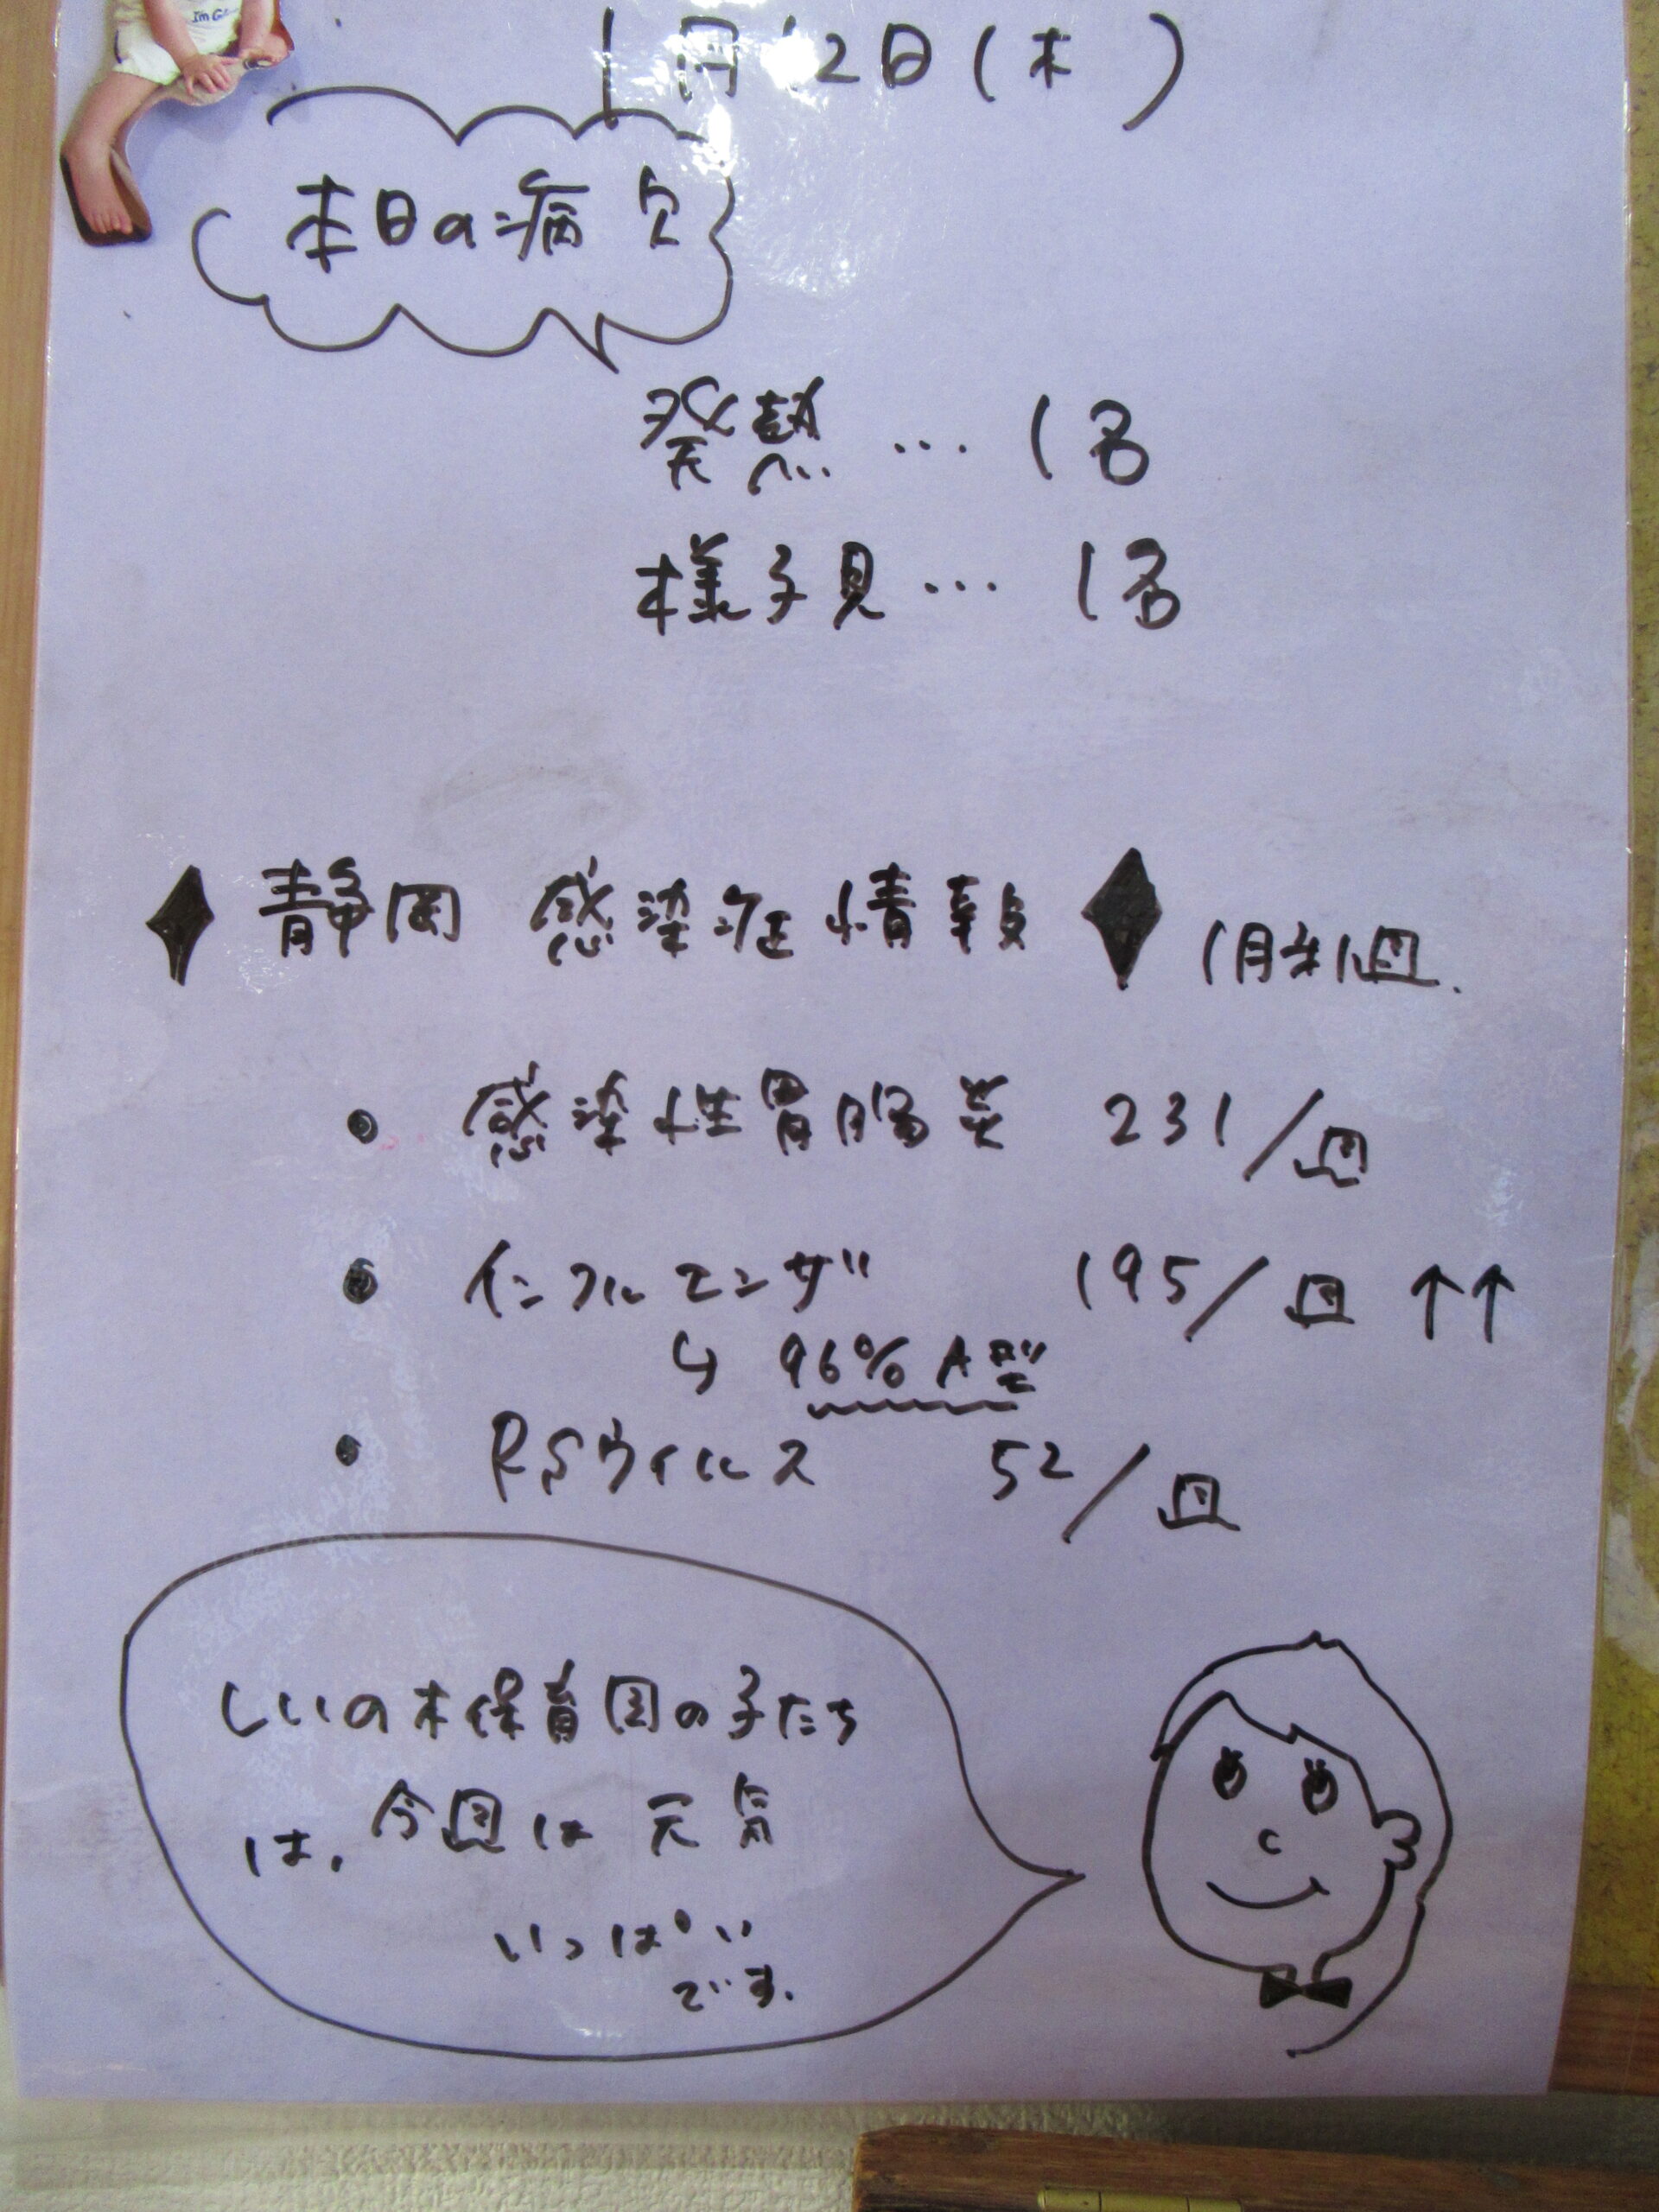 Im G
1月12日(木)
本日の病欠
発熱…1名
様子見…1名
◆静岡 感染症情報◆ 1月第1週.
• 感染性胃腸炎 231/週
• インフルエンザ 195/週 ↑↑
↳ 96% A型
• RSウイルス 52/週
しいの木保育園の子たち
は、今週は元気
いっぱい
です.